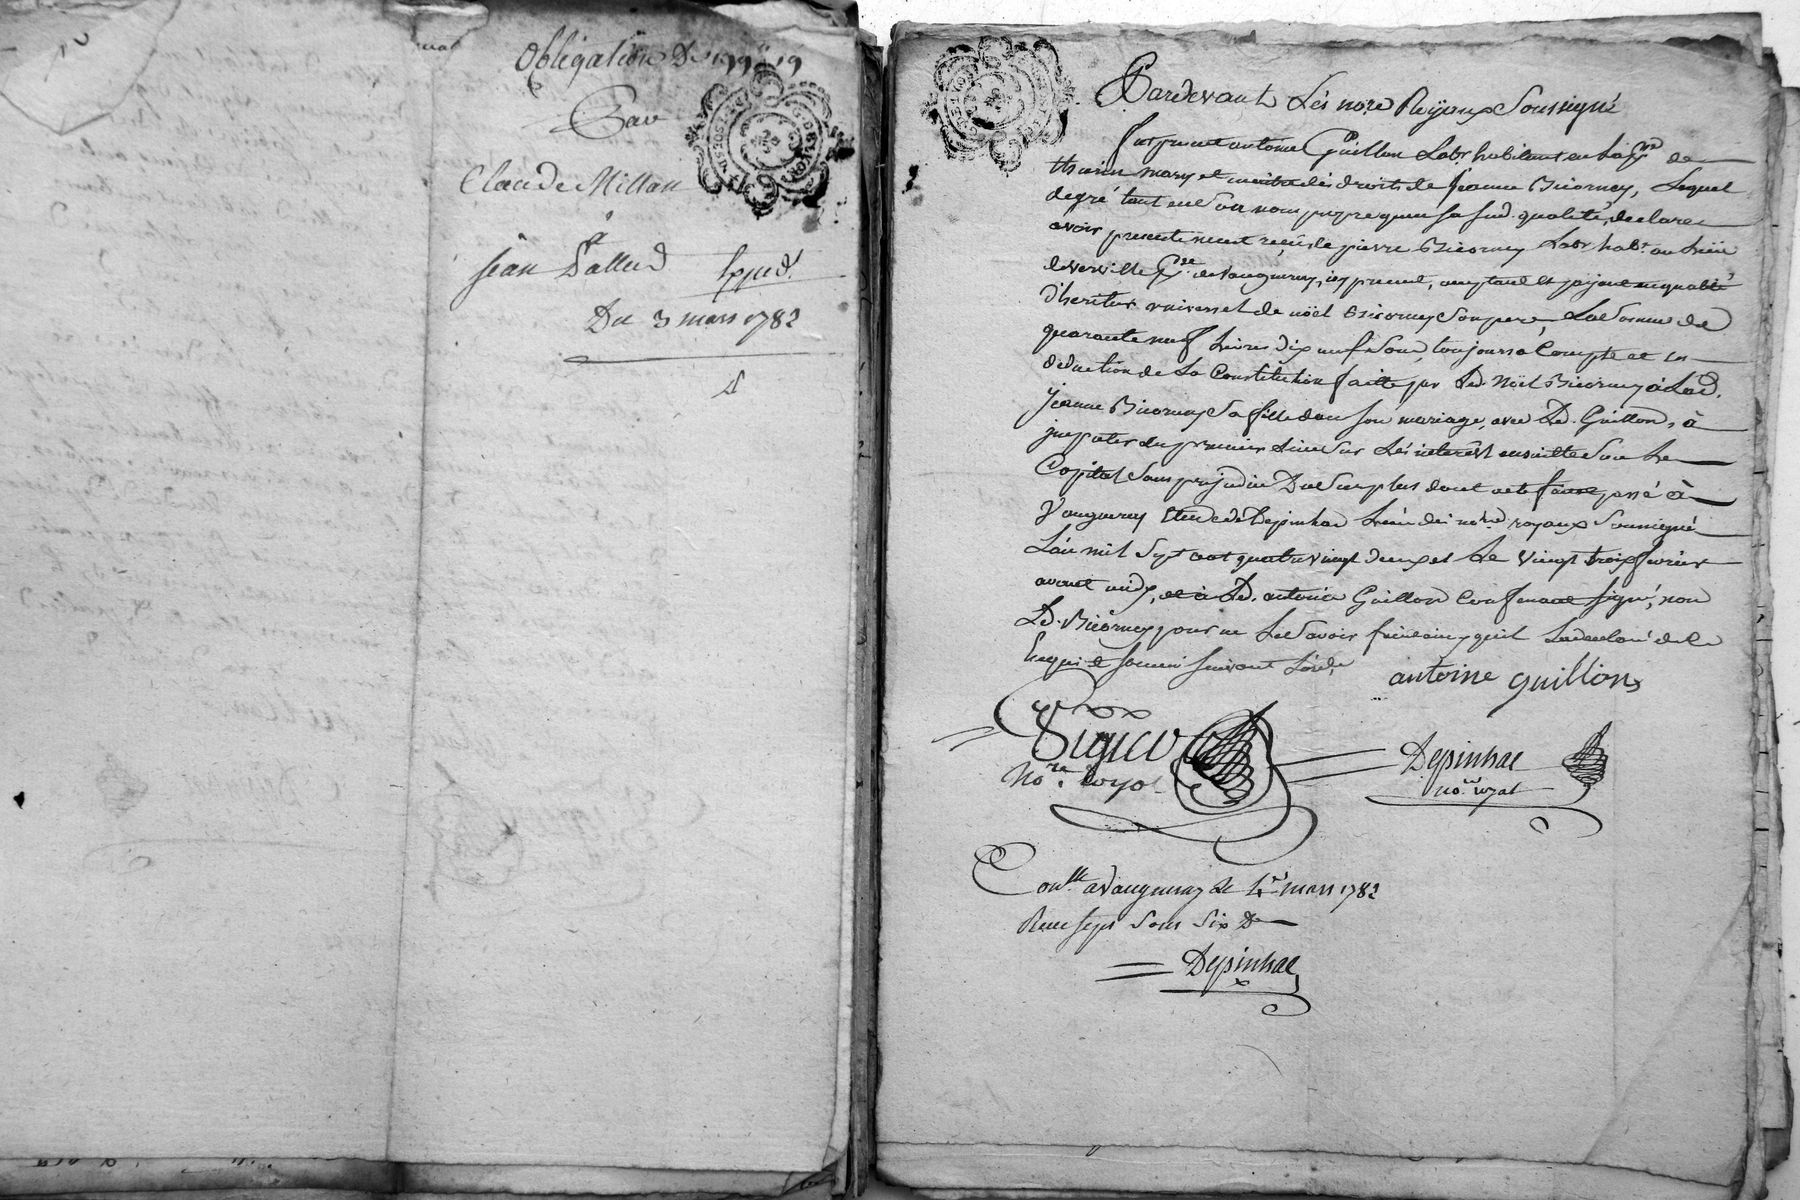 Obligation De 199ᵗᵗ 19
Par
Claude Millan
à
jean Pallud Exped.
Du 3 mars 1782
Pardevant Les nore Royaux Soussigné
fut present antoine Guillon Labr habitant en la psse de
thurin mary et maitre des droits de jeanne Bicorney, Lequel
de gré tant en Son nom propre quen sa sud. qualité, declare
avoir presentement reçu de pierre Bicorney Labr habt. au Lieu
de verville psse. de Vaugneray, icy present, comptant et payant en qualité
d'heritier universel de nöel Bicorney Son pere, La Somme de
quarante neuf Livres dix neuf Sous, toujours a Compte et en
deduction de La Constitution faitte par Led. Nöel Bicorney à Lad.
jeanne Bicorney Sa fille dans Son mariage, avec Led. Guillon, à
imputer du premier Sur Les interest ensuitte Sur Le
Capital Sans prejudice Du Surplus dont acte fait et passé à
Vaugneray Etude de Depinhac L'un des nores royaux Soussigné
L'an mil Sept cent quatre vingt deux et Le vingt trois fevrier
avant midy, et a Led. antoine Guillon Signé, non
Led. Bicorney pour ne Le Savoir faire ainsy qu'il La declaré de ce
Enquis et Sommé Suivant L'orde
antoine guillon
nore. royal
Depinhac
nore royal
Conllé a Vaugneray Le 1er mars 1782
Reçu Sept Sous Six D
Depinhac